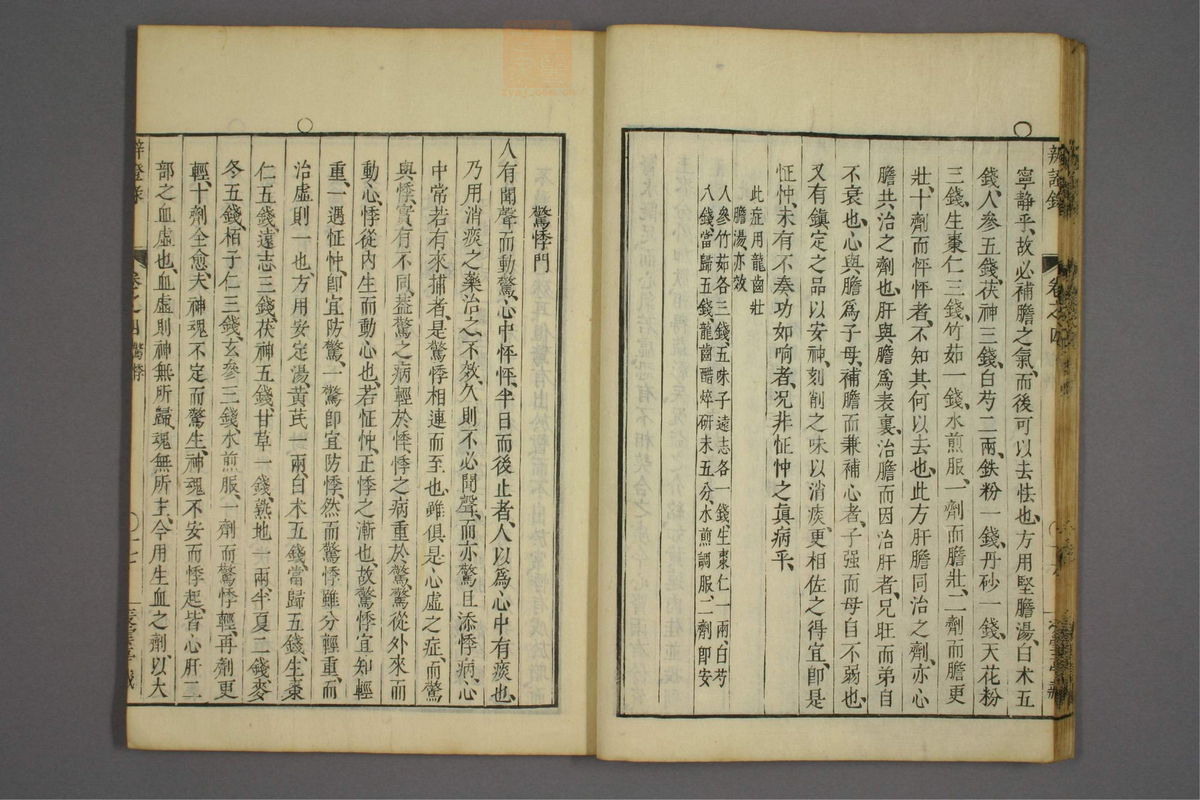 寧靜乎、故必補膽之氣、而後可以去怯也、方用堅膽湯、白术五
錢、人參五錢、茯神三錢、白芍二兩、鉄粉一錢、丹砂一錢、天花粉
三錢、生棗仁三錢、竹茹一錢、水煎服、一劑而膽壯、二劑而膽更
壯、十劑而怦怦者、不知其何以去也、此方肝膽同治之劑、亦心
膽共治之劑也、肝與膽爲表裏、治膽而因治肝者、兄旺而弟自
不衰也、心與膽爲子母、補膽而兼補心者、子强而母自不弱也、
又有鎭定之品以安神、刻削之味以消痰、更相佐之得宜、卽是
怔忡、未有不奏功如响者、况非怔忡之眞病乎、
此症用龍齒壯
膽湯、亦效
人參竹茹各三錢、五味子遠志各一錢、生棗仁一兩、白芍
八錢、當歸五錢、龍齒醋焠研末五分、水煎調服、二劑卽安
辨證錄
卷之四
驚悸門
人有聞聲而動驚、心中怦怦、半日而後止者、人以爲心中有痰也、
乃用消痰之藥治之不效、久則不必聞聲、而亦驚且添悸病、心
中常若有來捕者、是驚悸相連而至也、雖俱是心虛之症、而驚
與悸實有不同、蓋驚之病輕於悸、悸之病重於驚、驚從外來而
動心、悸從内生而動心也、若怔忡、正悸之漸也、故驚悸宜知輕
重、一遇怔忡、卽宜防驚、一驚卽宜防悸、然而驚悸雖分輕重、而
治虛則一也、方用安定湯、黃芪一兩、白术五錢、當歸五錢、生棗
仁五錢、遠志三錢、茯神五錢、甘草一錢、熟地一兩、半夏二錢、麥
冬五錢、栢子仁三錢、玄參三錢、水煎服、一劑而驚悸輕、再劑更
輕、十劑全愈、夫神魂不定而驚生、神魂不安而悸起、皆心肝二
部之血虛也、血虛則神無所歸、魂無所主、今用生血之劑、以大
卷之四驚悸